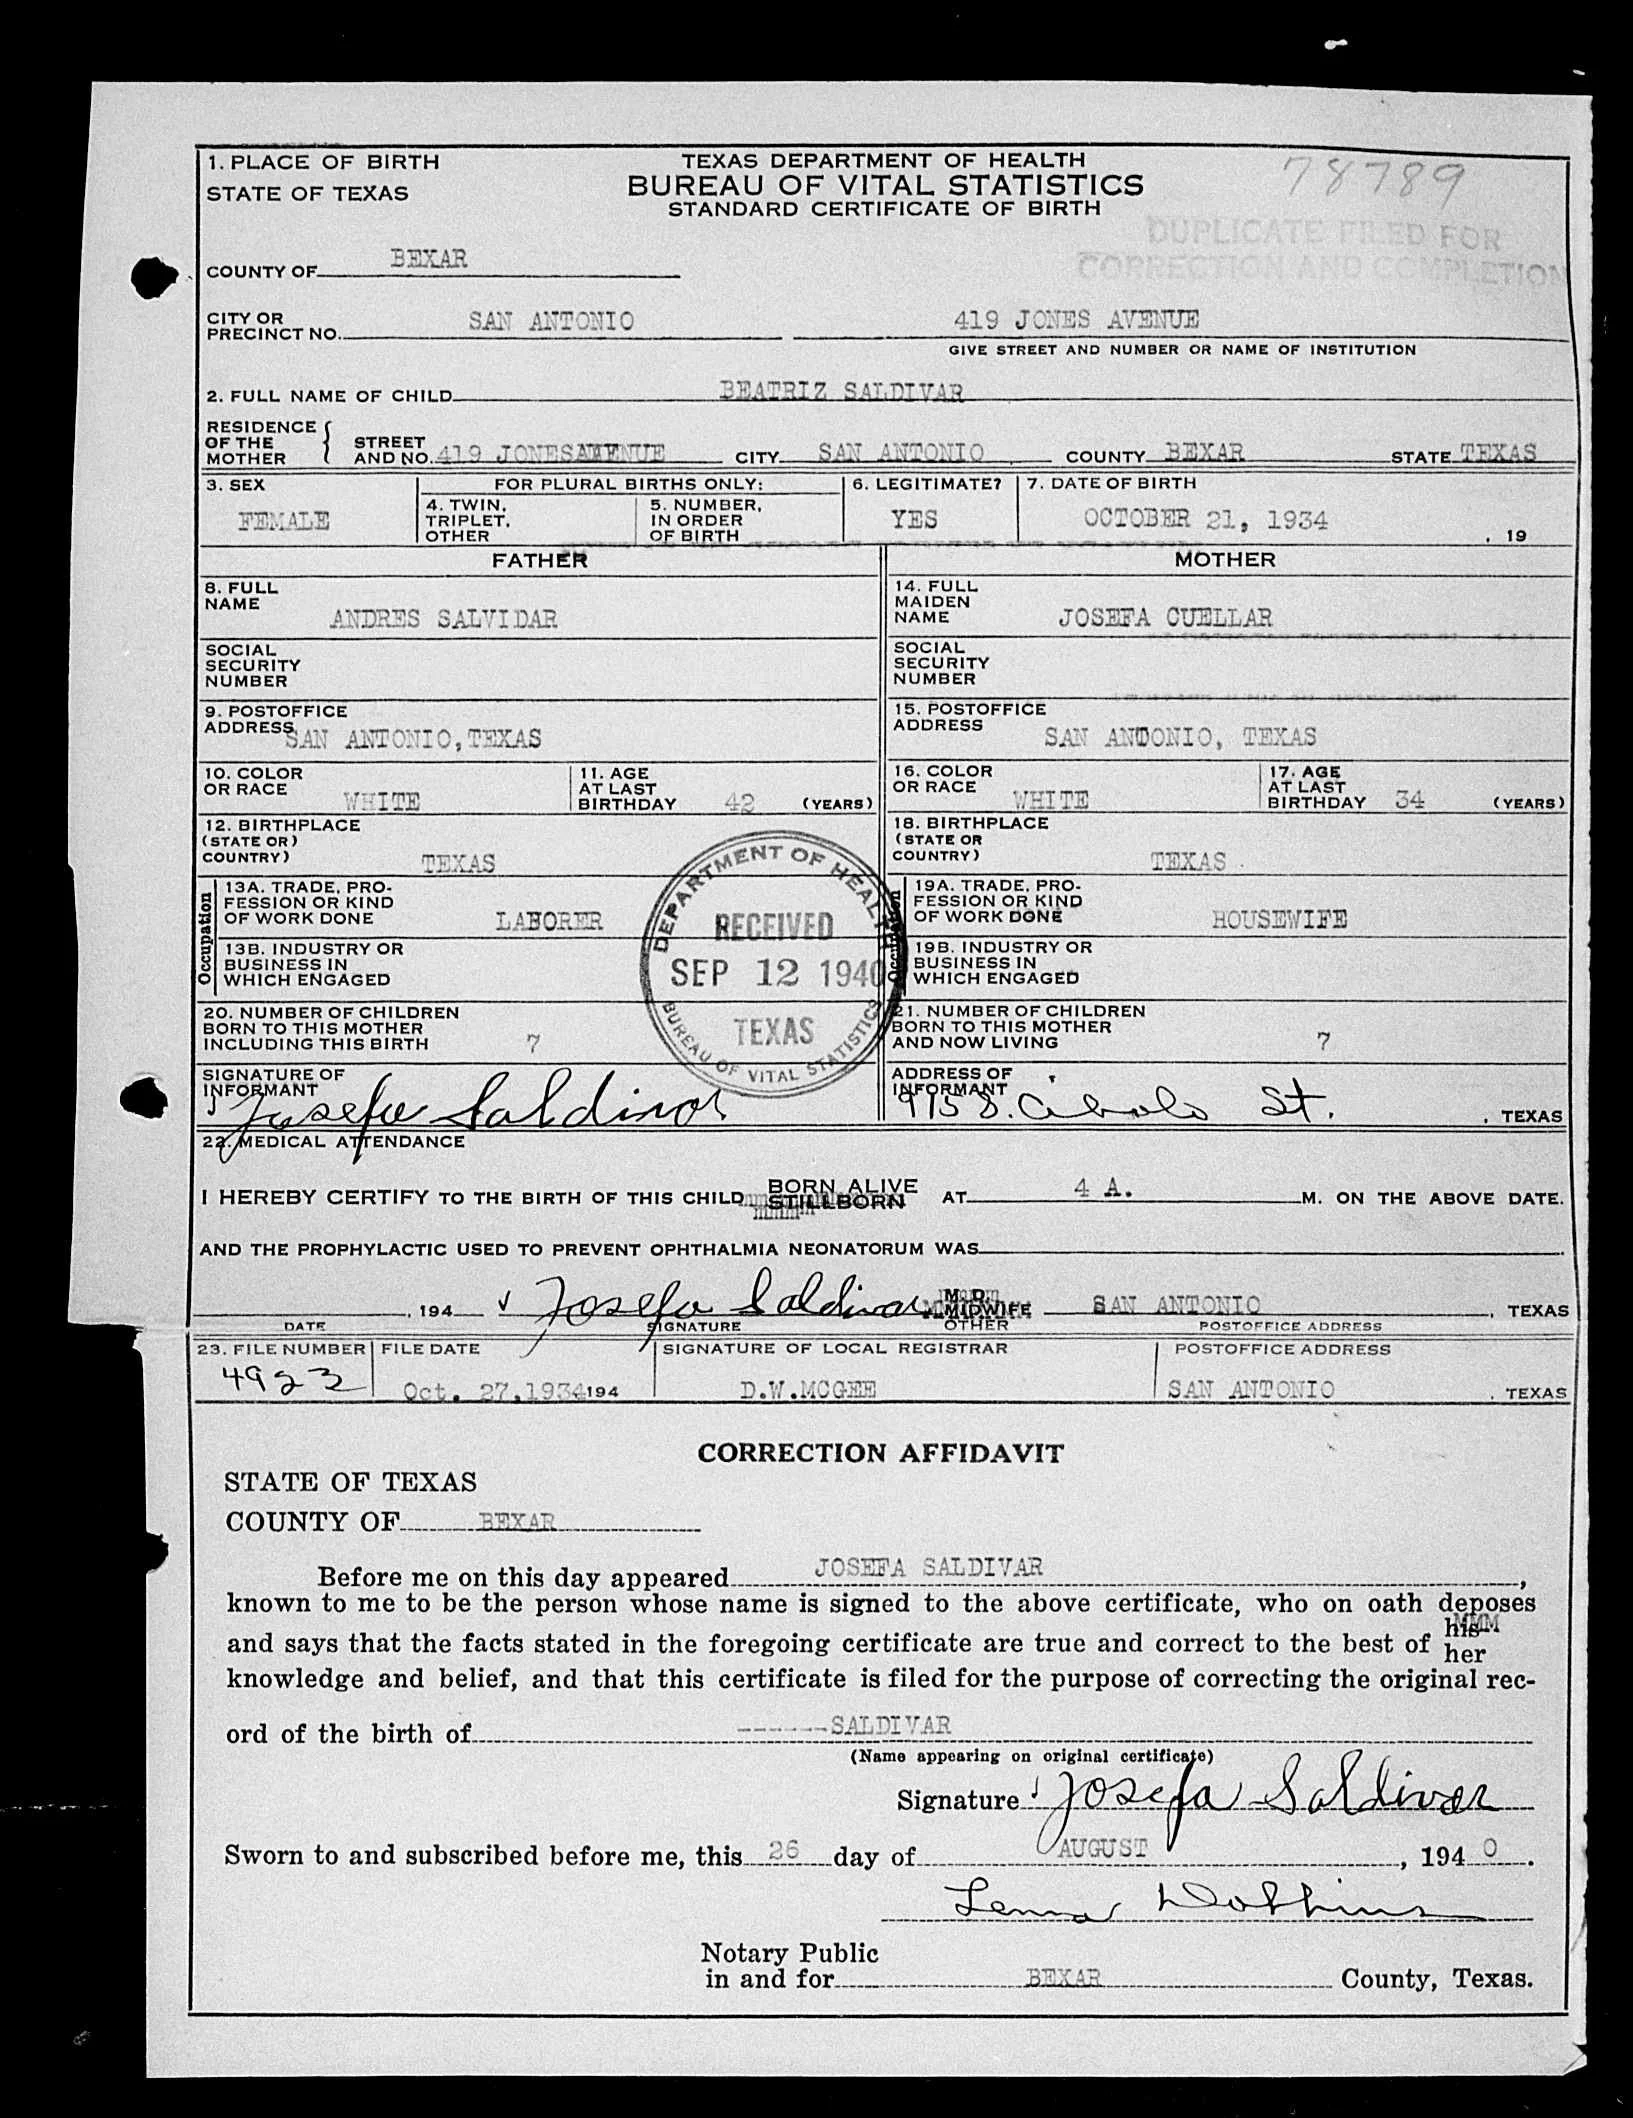 1. PLACE OF BIRTH
STATE OF TEXAS
TEXAS DEPARTMENT OF HEALTH
BUREAU OF VITAL STATISTICS
STANDARD CERTIFICATE OF BIRTH
78789
DUPLICATE FILED FOR
CORRECTION AND COMPLETION
COUNTY OF BEXAR
CITY OR
PRECINCT NO. SAN ANTONIO 419 JONES AVENUE
GIVE STREET AND NUMBER OR NAME OF INSTITUTION
2. FULL NAME OF CHILD BEATRIZ SALDIVAR
RESIDENCE
OF THE
MOTHER
STREET
AND NO. 419 JONES AVENUE CITY SAN ANTONIO COUNTY BEXAR STATE TEXAS
3. SEX
FEMALE
FOR PLURAL BIRTHS ONLY:
4. TWIN,
TRIPLET,
OTHER
5. NUMBER,
IN ORDER
OF BIRTH
6. LEGITIMATE?
YES
7. DATE OF BIRTH
OCTOBER 21, 1934 , 19
FATHER
MOTHER
8. FULL
NAME
ANDRES SALVIDAR
14. FULL
MAIDEN
NAME
JOSEFA CUELLAR
SOCIAL
SECURITY
NUMBER
SOCIAL
SECURITY
NUMBER
9. POSTOFFICE
ADDRESS
SAN ANTONIO, TEXAS
15. POSTOFFICE
ADDRESS
SAN ANTONIO, TEXAS
10. COLOR
OR RACE
WHITE
11. AGE
AT LAST
BIRTHDAY 42 (YEARS)
16. COLOR
OR RACE
WHITE
17. AGE
AT LAST
BIRTHDAY 34 (YEARS)
12. BIRTHPLACE
(STATE OR)
COUNTRY)
TEXAS
18. BIRTHPLACE
(STATE OR
COUNTRY)
TEXAS
Occupation
13A. TRADE, PRO-
FESSION OR KIND
OF WORK DONE
LABORER
13B. INDUSTRY OR
BUSINESS IN
WHICH ENGAGED
DEPARTMENT OF HEALTH
RECEIVED
SEP 12 1940
TEXAS
BUREAU OF VITAL STATISTICS
Occupation
19A. TRADE, PRO-
FESSION OR KIND
OF WORK DONE
HOUSEWIFE
19B. INDUSTRY OR
BUSINESS IN
WHICH ENGAGED
20. NUMBER OF CHILDREN
BORN TO THIS MOTHER
INCLUDING THIS BIRTH 7
21. NUMBER OF CHILDREN
BORN TO THIS MOTHER
AND NOW LIVING 7
SIGNATURE OF
INFORMANT
Josefa Saldivar
ADDRESS OF
INFORMANT
St. , TEXAS
22. MEDICAL ATTENDANCE
I HEREBY CERTIFY TO THE BIRTH OF THIS CHILD BORN ALIVE
STILLBORN AT 4 A. M. ON THE ABOVE DATE.
AND THE PROPHYLACTIC USED TO PREVENT OPHTHALMIA NEONATORUM WAS
, 194 Josefa Saldivar M. D.
MIDWIFE
OTHER
SAN ANTONIO , TEXAS
DATE SIGNATURE POSTOFFICE ADDRESS
23. FILE NUMBER
4923
FILE DATE
Oct. 27, 1934 194
SIGNATURE OF LOCAL REGISTRAR
D.W.MCGEE
POSTOFFICE ADDRESS
SAN ANTONIO , TEXAS
CORRECTION AFFIDAVIT
STATE OF TEXAS
COUNTY OF BEXAR
Before me on this day appeared JOSEFA SALDIVAR,
known to me to be the person whose name is signed to the above certificate, who on oath deposes
and says that the facts stated in the foregoing certificate are true and correct to the best of his
her
knowledge and belief, and that this certificate is filed for the purpose of correcting the original rec-
ord of the birth of ------SALDIVAR
(Name appearing on original certificate)
Signature Josefa Saldivar
Sworn to and subscribed before me, this 26 day of AUGUST, 1940.
Lena Dobbins
Notary Public
in and for BEXAR County, Texas.